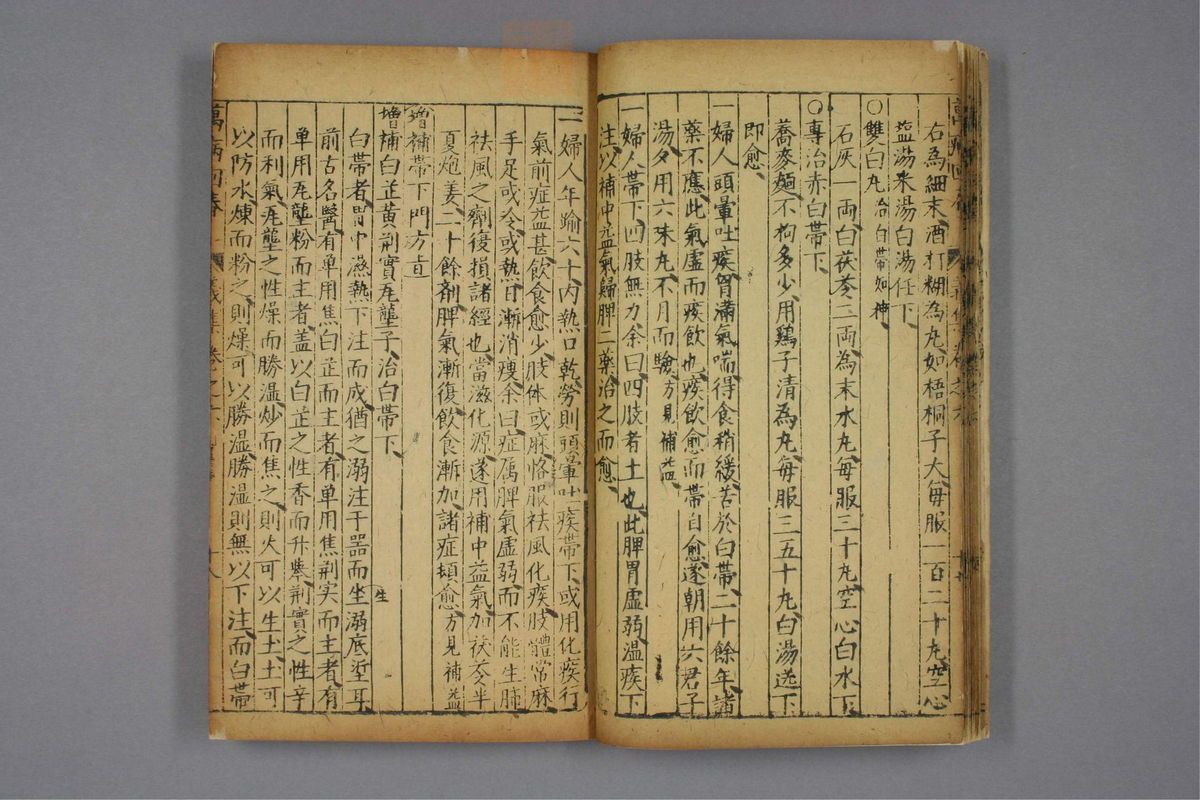 右為細末酒打糊為丸如梧桐子大每服一百二十丸空心
塩湯米湯白湯任下
〇雙白丸 治白帶如神
石灰一両白茯苓二両為末水丸每服三十丸空心白水下
〇專治赤白帶下
蕎麥麵不拘多少用鷄子清為丸每服三五十丸白湯送下
即愈
一婦人頭暈吐痰胷滿氣喘得食稍緩苦於白帶二十餘年諸
藥不應此氣虛而痰飲也痰飲愈而帶自愈遂朝用六君子
湯夕用六味丸不月而驗方見補益
一婦人帶下四肢無力余曰四肢者土也此脾胃虛弱濕痰下
注以補中益氣歸脾二藥治之而愈
一婦人年踰六十内熱口乾勞則頭暈吐痰帶下或用化痰行
氣前症益甚飲食愈少肢体或麻恪服祛風化痰肢體常麻
手足或冷或熱日漸消瘦余曰症属脾氣虛弱而不能生肺
祛風之齊復損諸經也當滋化源遂用補中益氣加茯苓半
夏炮姜二十餘剤脾氣漸復飲食漸加諸症頓愈方見補益
增補帶下門方
增補白芷黄荆實瓦壟子治白帶下
白帶者胃中濕熱下注而成猶之溺注于器而坐溺底垽耳
生
前古名醫有单用焦白芷而主者有单用焦荆实而主者有
单用瓦壟粉而主者盖以白芷之性香而升牽荆實之性辛
而利氣瓦壟之性燥而勝温炒而焦之則火可以生土土可
以防水煉而粉之則燥可以勝温勝温則無以下注而白帶
萬病回春